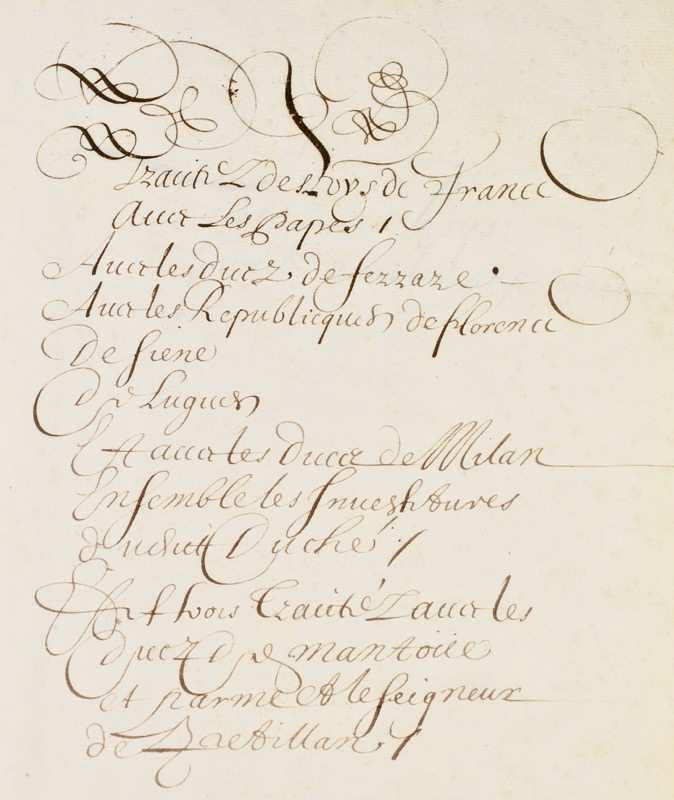 Traitez des roys de France
Avec Les Papes /
Avec les Ducz de ferrare .
Avec les Republicques de florence
De Siene
De Lugues
Et avec les Ducz de Milan
Ensemble les Investitures
dudict Duché /
Et trois Traictéz avec les
Ducz de mantoüe
et parme et le seigneur
de